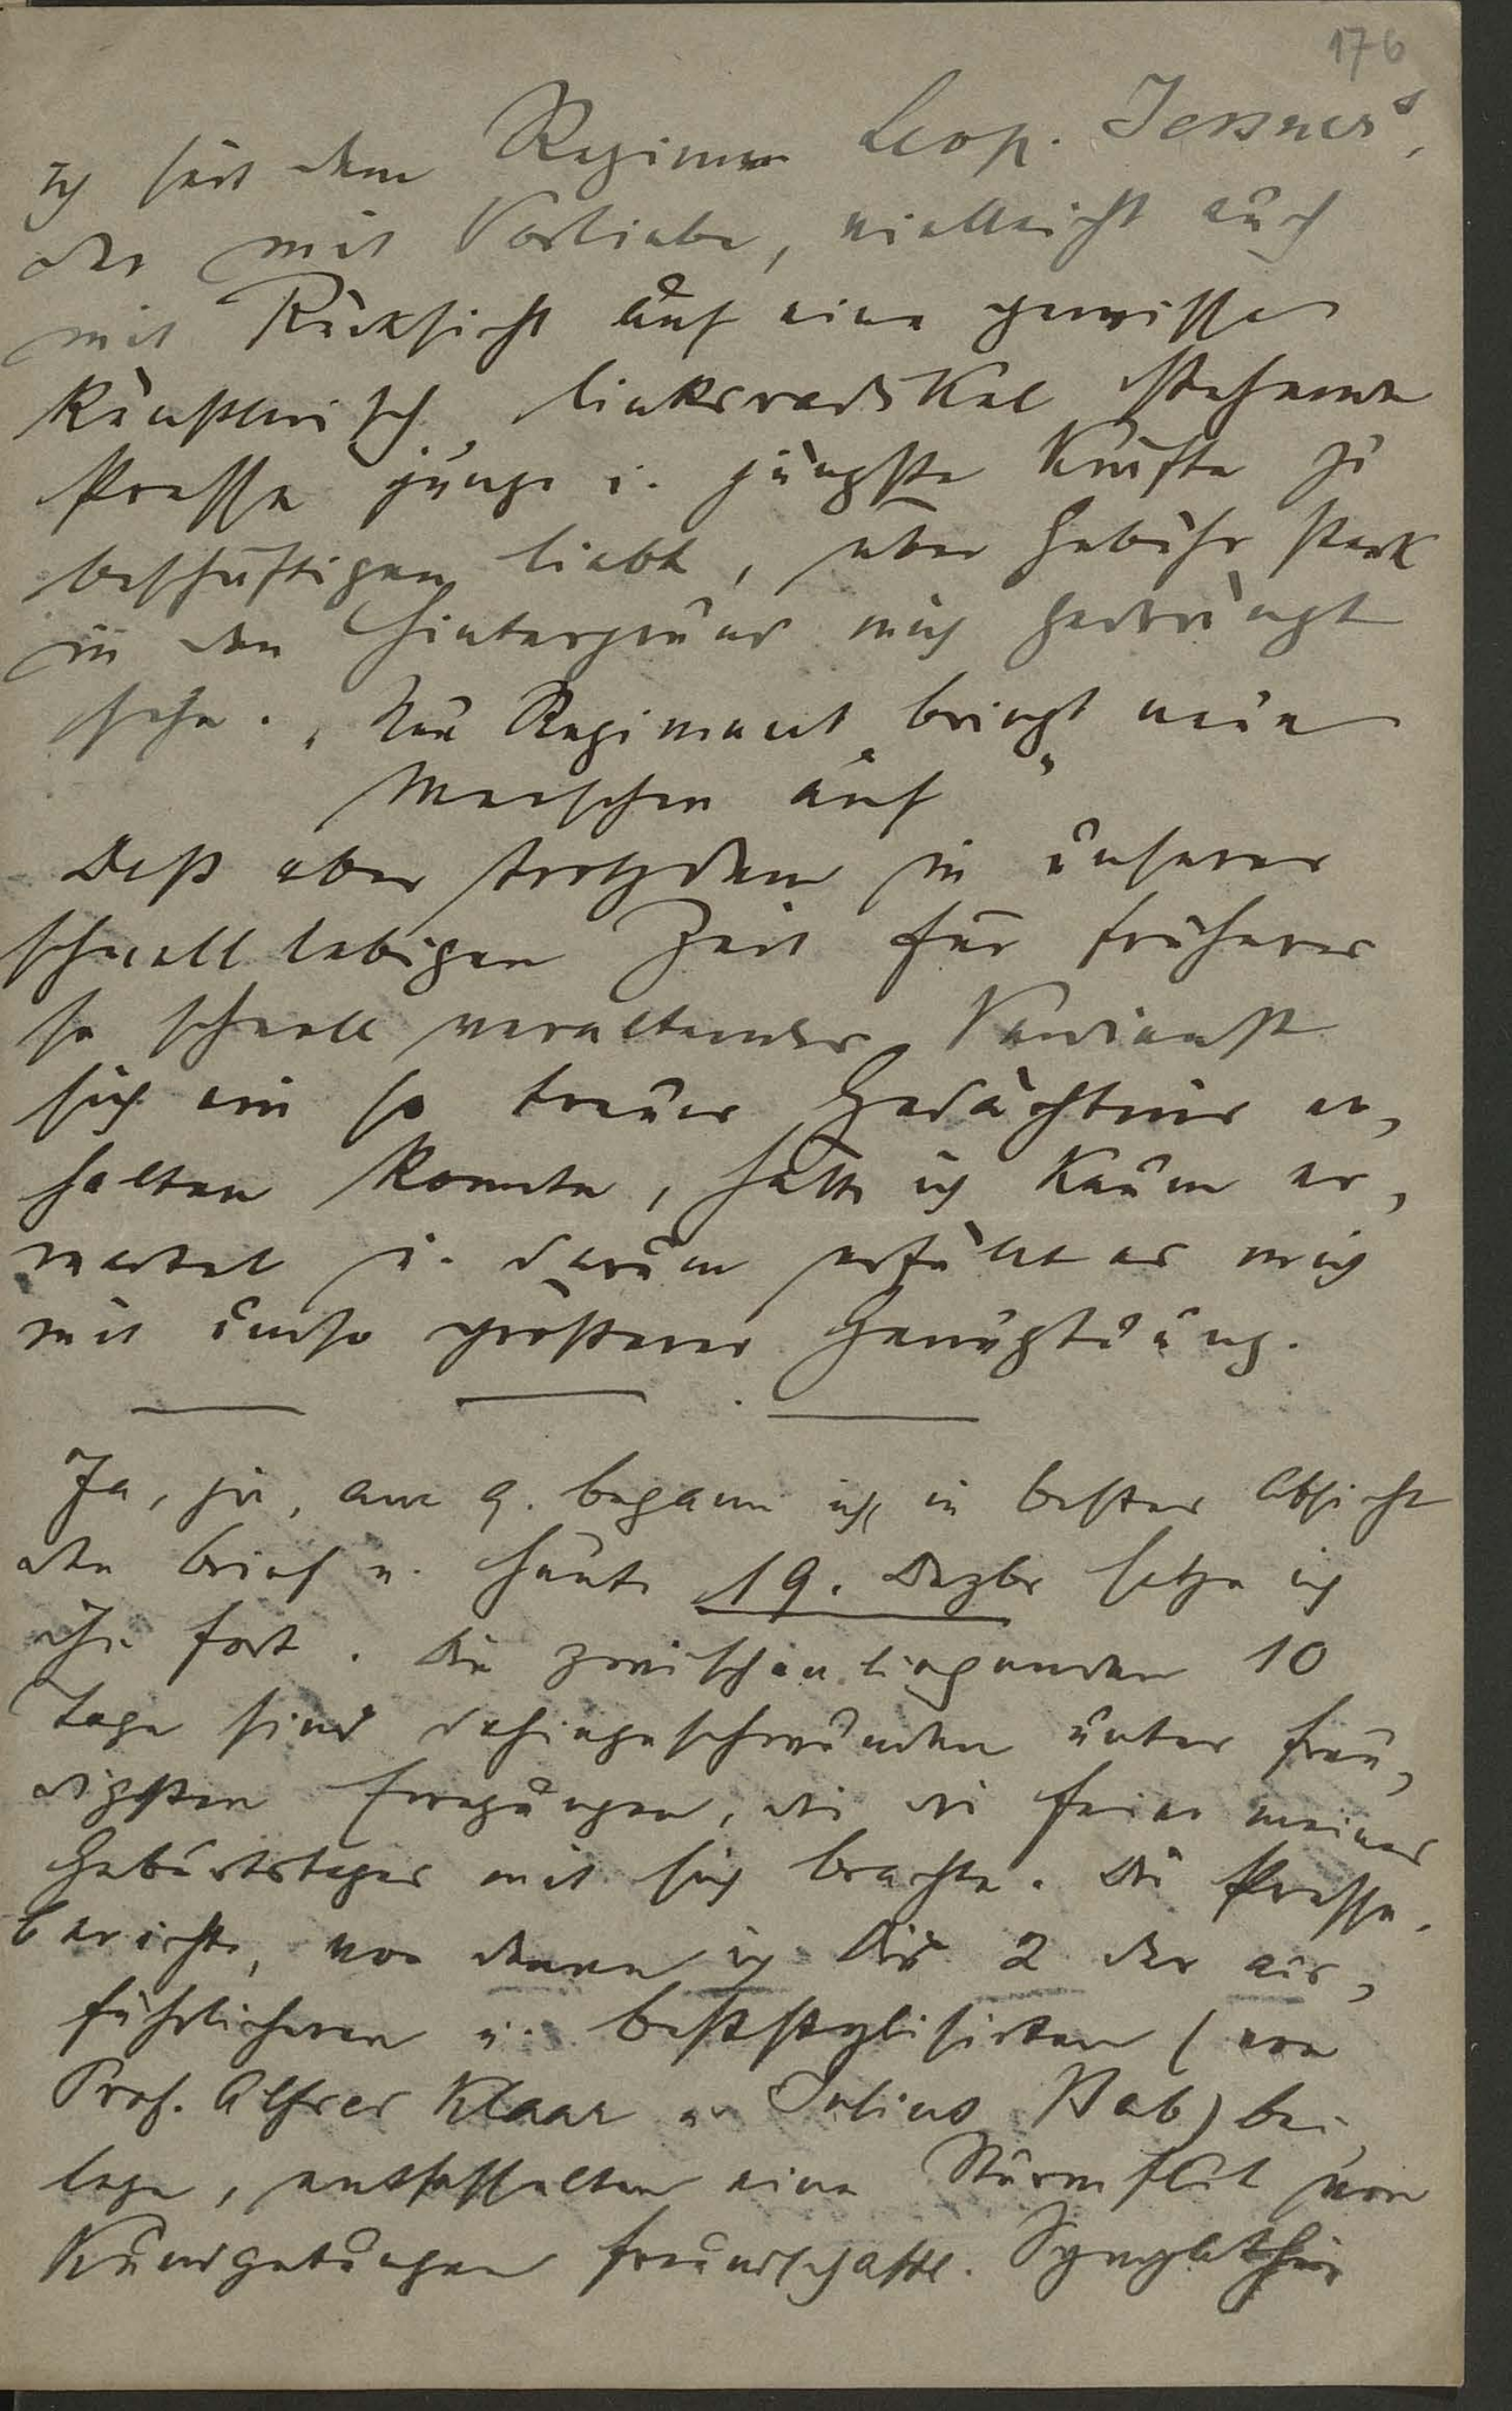 176
ich seit dem Regime Leop. Jessners,
der mit Vorliebe, vielleicht auch
mit Rücksicht auf eine gewisse
künstlerisch linksradikal stehende
Presse junge u. jüngste Kräfte zu
beschäftigen liebt, über Gebühr stark
in den Hintergrund mich gedrängt
sehe. „Neu Regiment bringt neue
Menschen auf“
Daß aber trotzdem in unserer
schnelllebigen Zeit für früheres
so schnell veraltendes Verdienst
sich ein so treues Gedächtnis er-
halten konnte, hätte ich kaum er-
wartet u. darum erfüllt es mich
mit umso größerer Genugtuung.
Ja, ja, am 9. begann ich in bester Absicht
den Brief u. heute 19. Dezbr setze ich
ihn fort. Die zwischenliegenden 10
Tage sind dahingeschwunden unter freu-
digsten Erregungen, die die Feier meines
Geburtstages mit sich brachte. Die Presse-
berichte, von denen ich Dir 2 der aus-
führlicheren u. beststylisirten (von
Prof. Alfred Klaar u. Julius Bab) bei
lege, entfesselten eine Sturmflut von
Kundgebungen freundschaftl. Sympathie